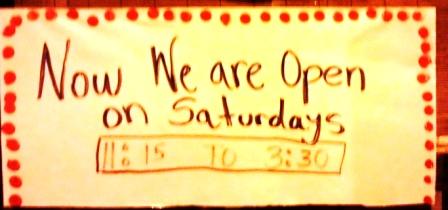 Now We are Open
on Saturdays
11:15 TO 3:30